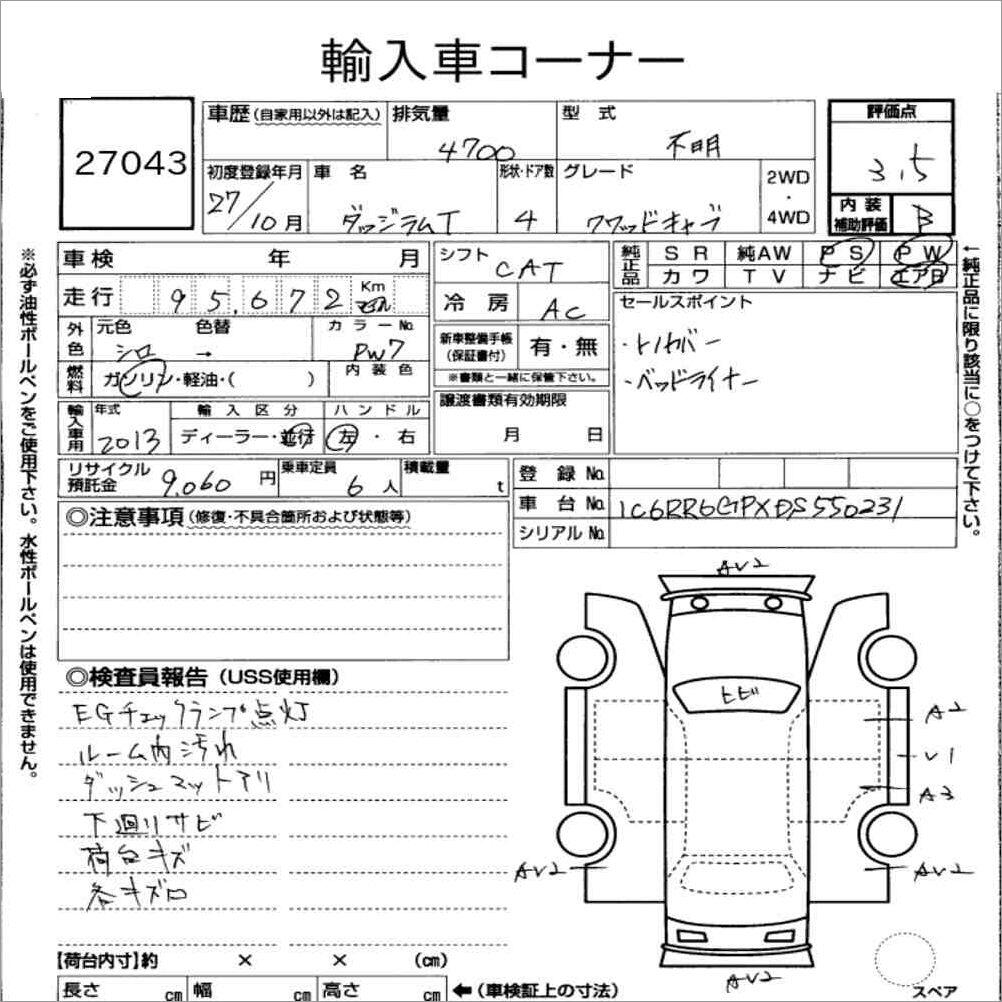 輸入車コーナー
27043
車歴 (自家用以外は記入)
排気量
4700
型 式
不明
評価点
3.5
初度登録年月
27/10月
車 名
ダッジラムT
形状・ドア数
4
グレード
クワッドキャブ
2WD
・
4WD
内 装
補助評価
B
車検 年 月
シフト
CAT
純正品
S R 純AW P S P W
カワ T V ナビ エアB
走行 95,672 Km マイル
冷 房
AC
セールスポイント
・トノカバー
・ベッドライナー
外色
元色 色替 カラーNo.
シロ → PW7
新車整備手帳
(保証書付)
有・無
※書類と一緒に保管下さい。
燃料
ガソリン・軽油・( )
内 装 色
譲渡書類有効期限
月 日
輸入車用
年式
2013
輸 入 区 分
ディーラー・並行
ハ ン ド ル
左 ・ 右
リサイクル
預託金
9,060 円
乗車定員
6 人
積載量
t
登 録 No.
車 台 No. 1C6RR6GPXDS550231
シリアル No.
◎注意事項(修復・不具合箇所および状態等)
◎検査員報告(USS使用欄)
EGチェックランプ点灯
ルーム内汚れ
ダッシュマットアリ
下廻りサビ
荷台キズ
各キズ凹
AV2
ヒビ
A2
V1
A3
AV2
AV2
AV2
スペア
【荷台内寸】約 × × (cm)
長さ cm 幅 cm 高さ cm ←(車検証上の寸法)
※必ず油性ボールペンをご使用下さい。水性ボールペンは使用できません。
←純正品に限り該当に○をつけて下さい。